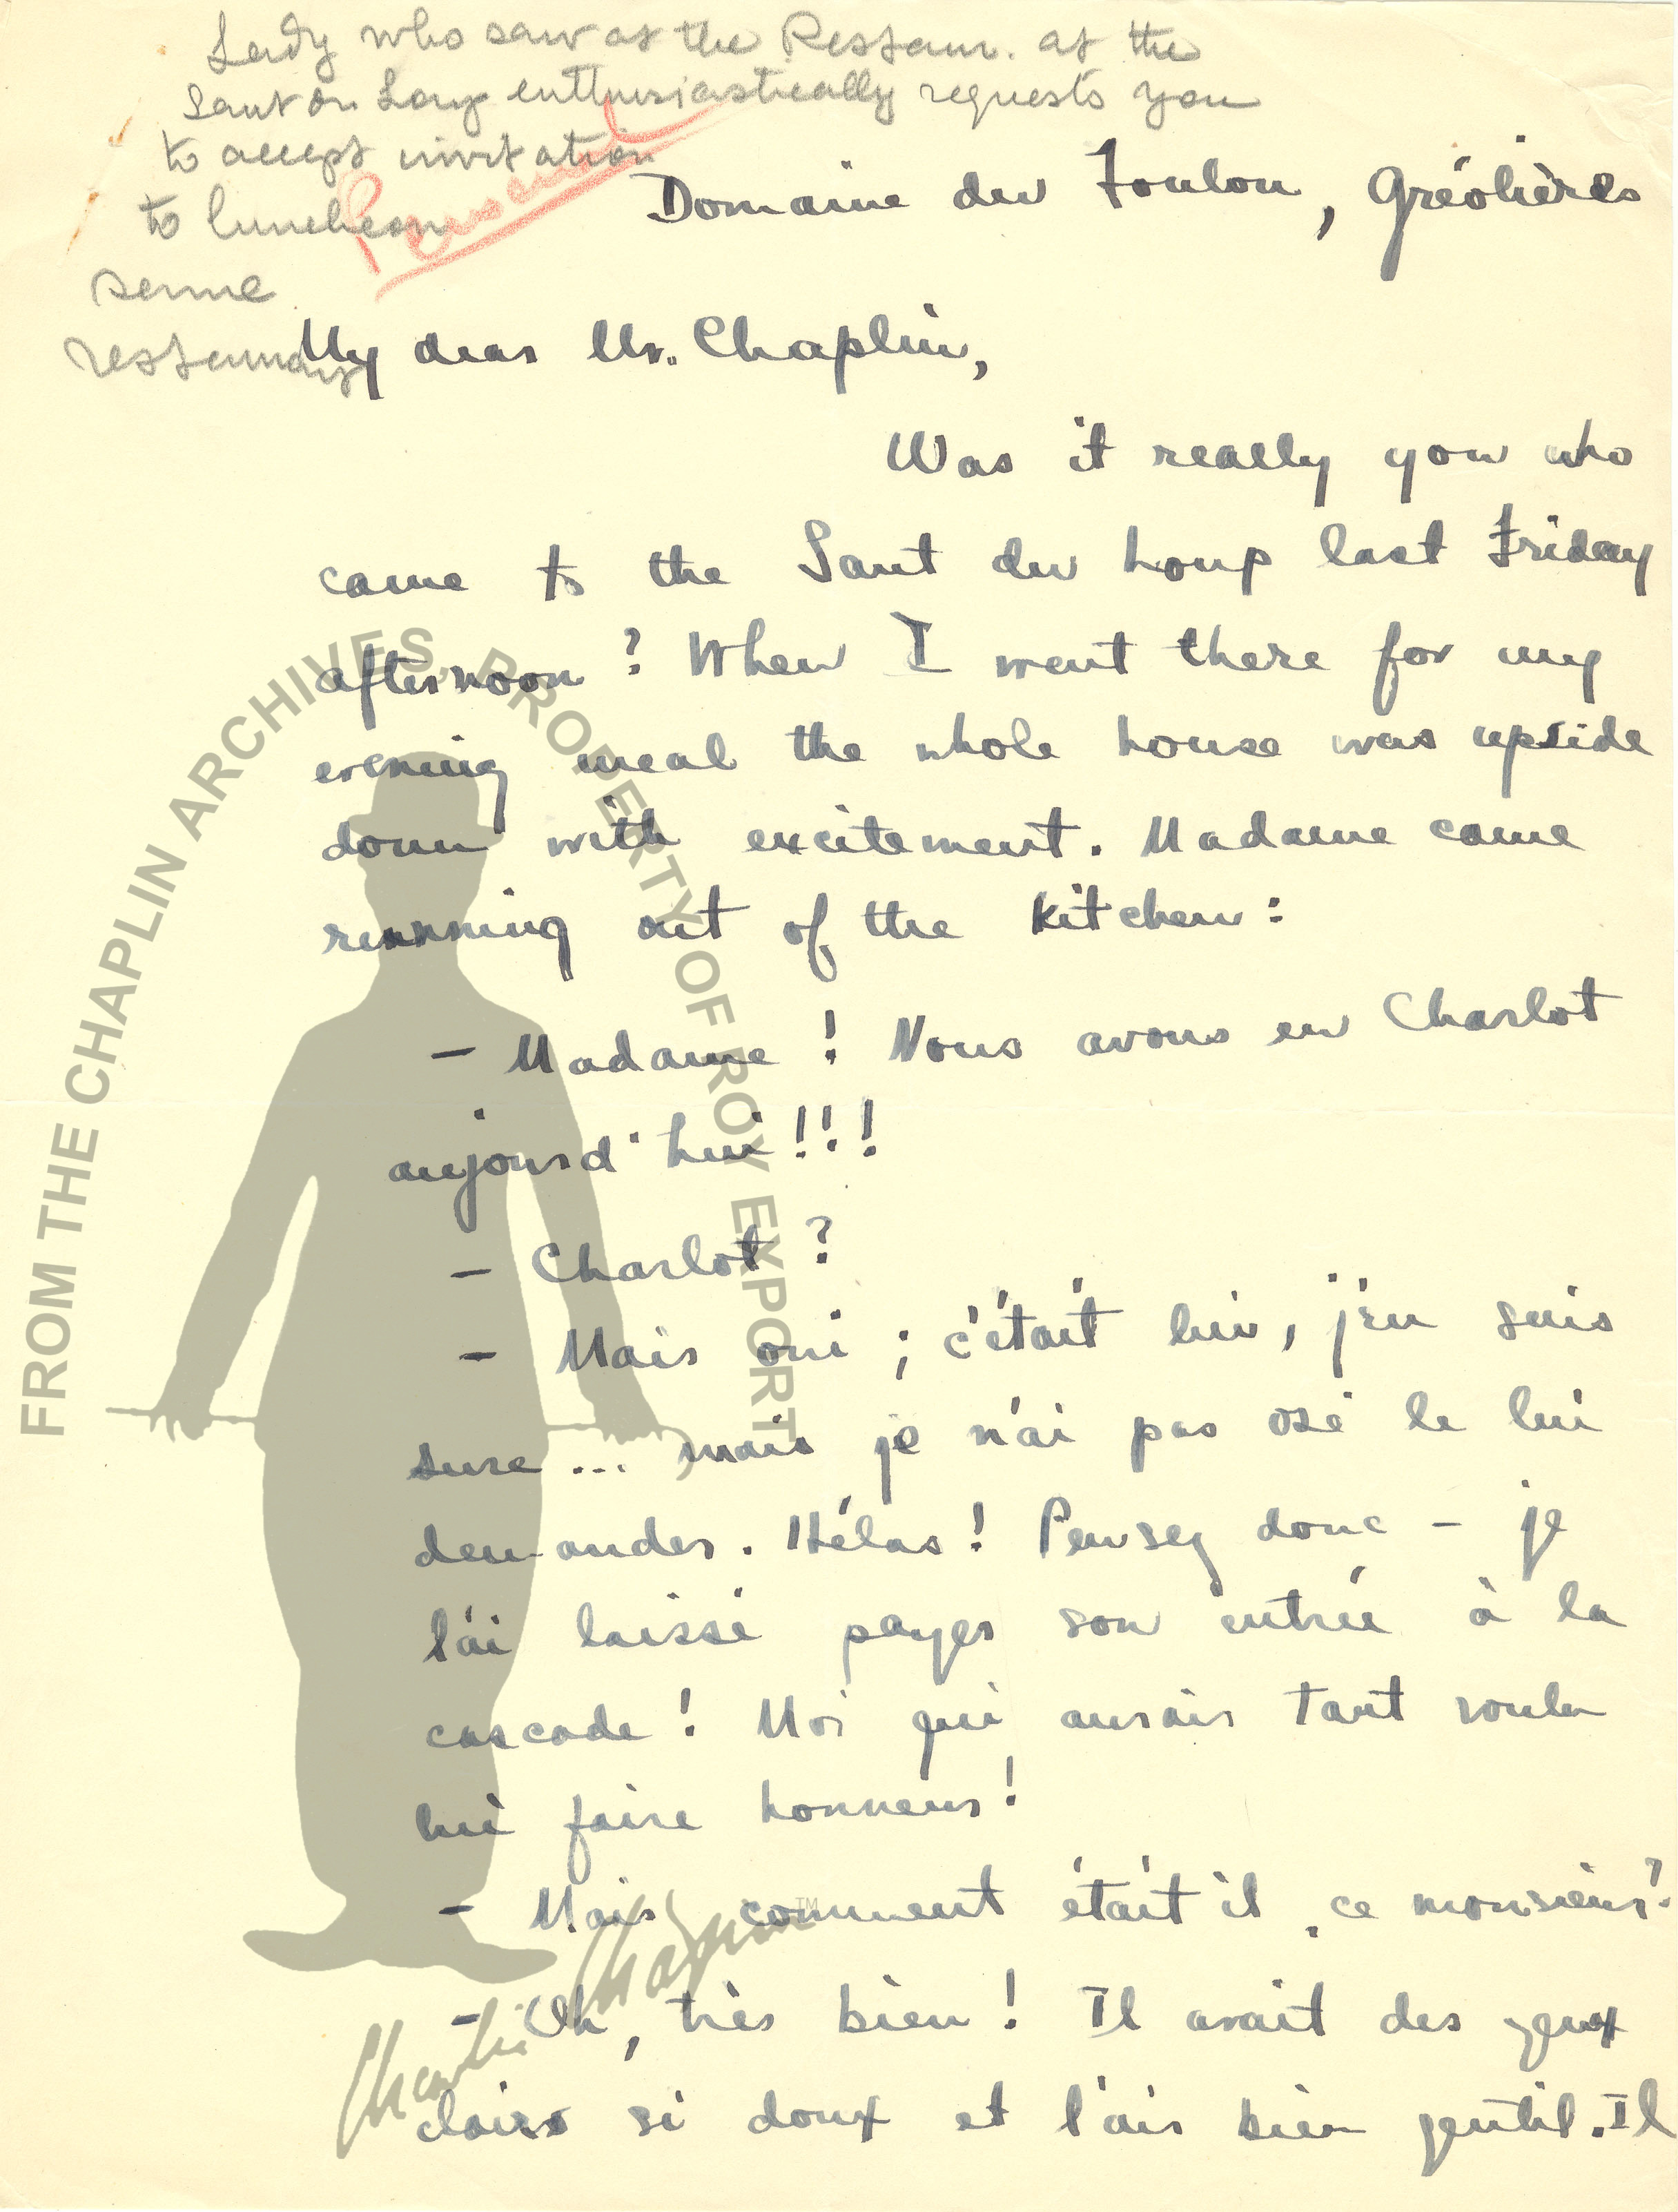 Lady who saw at the Restaur. at the
Saut du Loup enthusiastically requests you
to accept invitation
to luncheon
same
restaurant
Personal
Domaine du Foulon, Gréolières
My dear Mr. Chaplin,
Was it really you who
came to the Saut du Loup last Friday
afternoon? When I went there for my
evening meal the whole house was upside
down with excitement. Madame came
running out of the kitchen:
- Madame! Nous avons eu Charlot
aujourd'hui!!!
- Charlot?
- Mais oui; c'était lui, j'en suis
sure... mais je n'ai pas osé le lui
demander. Hélas! Pensez donc - je
l'ai laissé payer son entrée à la
cascade! Moi qui aurais tant voulu
lui faire honneur!
- Mais comment était il, ce monsieur?
- Oh, très bien! Il avait des yeux
clairs si doux et l'air bien gentil. Il
FROM THE CHAPLIN ARCHIVES, PROPERTY OF ROY EXPORT
Charlie Chaplin TM